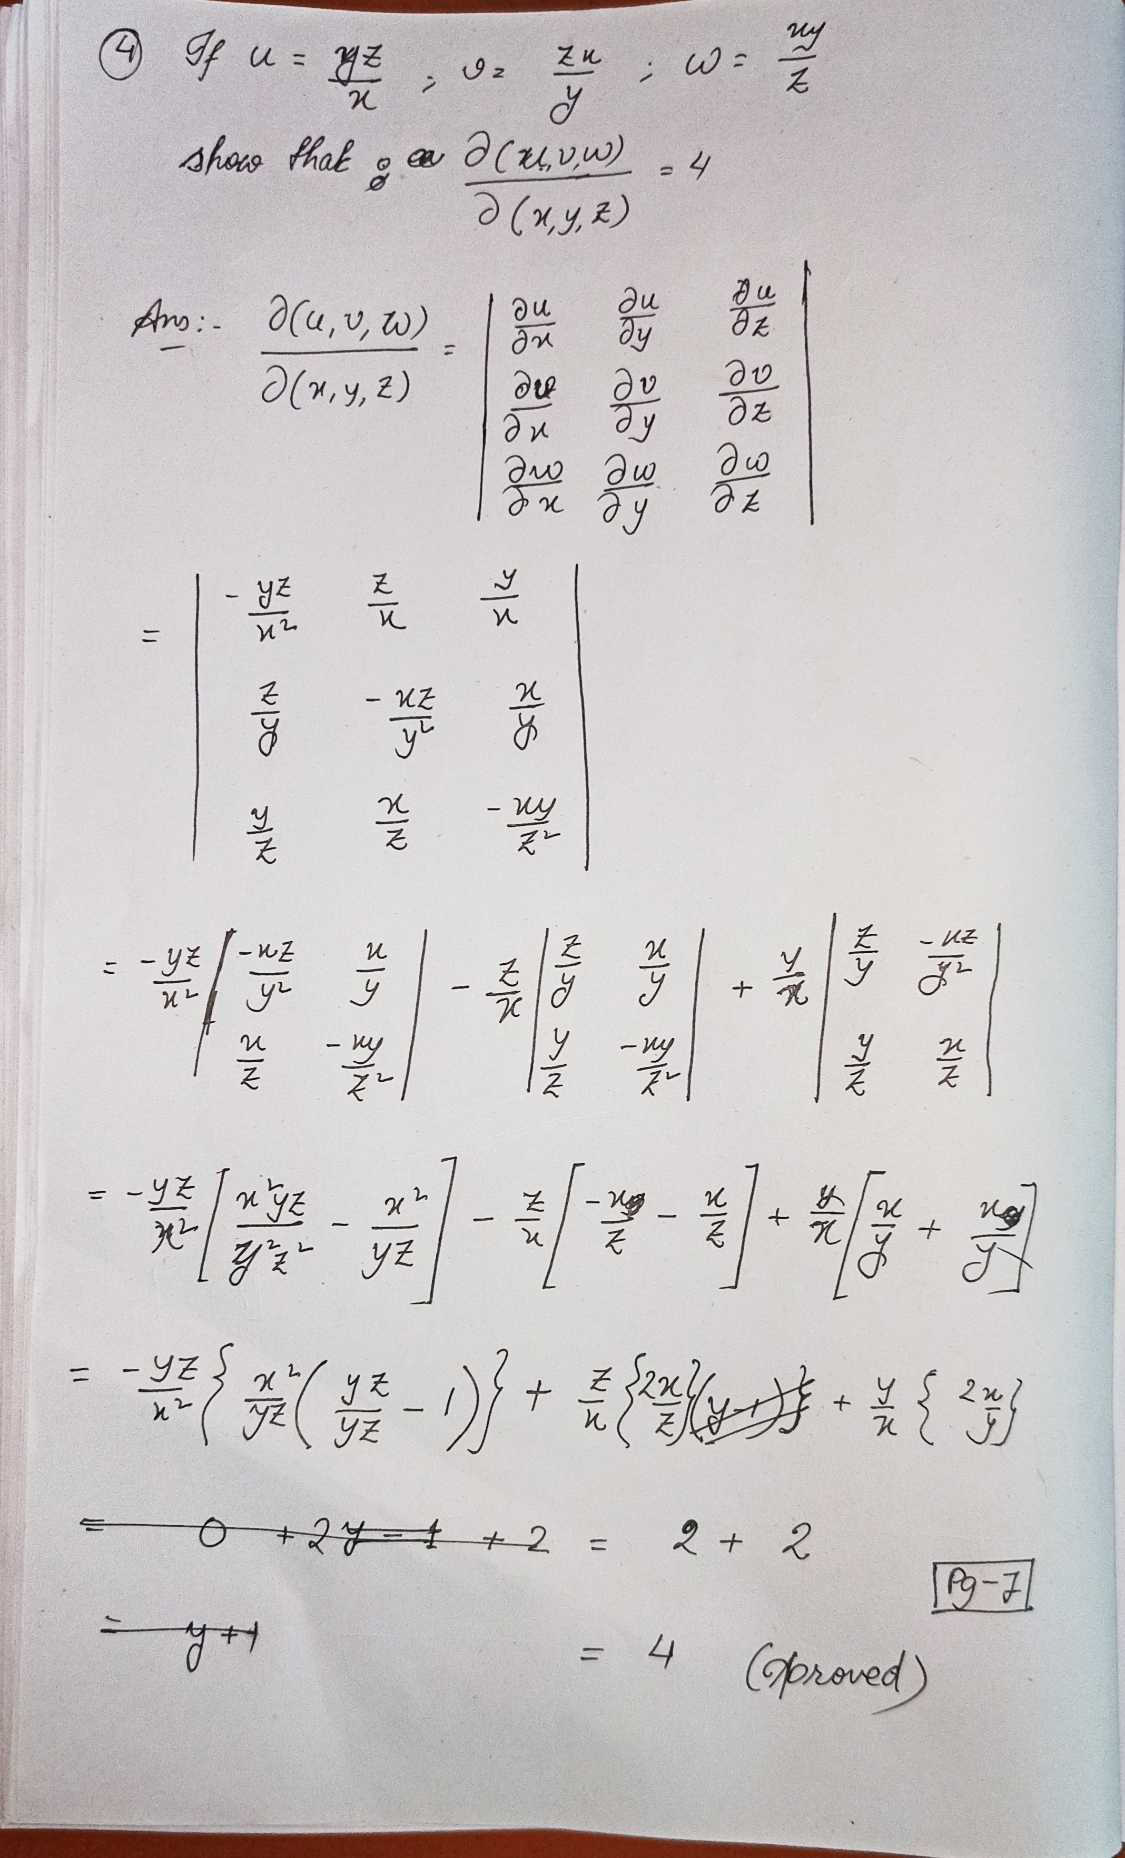 ④ If u = yz/x ; v = zx/y ; w = xy/z
show that : ∂(u,v,w)/∂(x,y,z) = 4
Ans:- ∂(u,v,w)/∂(x,y,z) = | ∂u/∂x ∂u/∂y ∂u/∂z |
| ∂v/∂x ∂v/∂y ∂v/∂z |
| ∂w/∂x ∂w/∂y ∂w/∂z |
= | -yz/x² z/x y/x |
| z/y -xz/y² x/y |
| y/z x/z -xy/z² |
= -yz/x² | -xz/y² x/y | - z/x | z/y x/y | + y/x | z/y -xz/y² |
| x/z -xy/z² | | y/z -xy/z² | | y/z x/z |
= -yz/x² [ x²yz/y²z² - x²/yz ] - z/x [ -x/z - x/z ] + y/x [ x/y + x/y ]
= -yz/x² { x²/yz ( yz/yz - 1 ) } + z/x { 2x/z } (y+1)} + y/x { 2x/y }
= 0 + 2y - 1 + 2 = 2 + 2
Pg-7
= y+1 = 4 (proved)